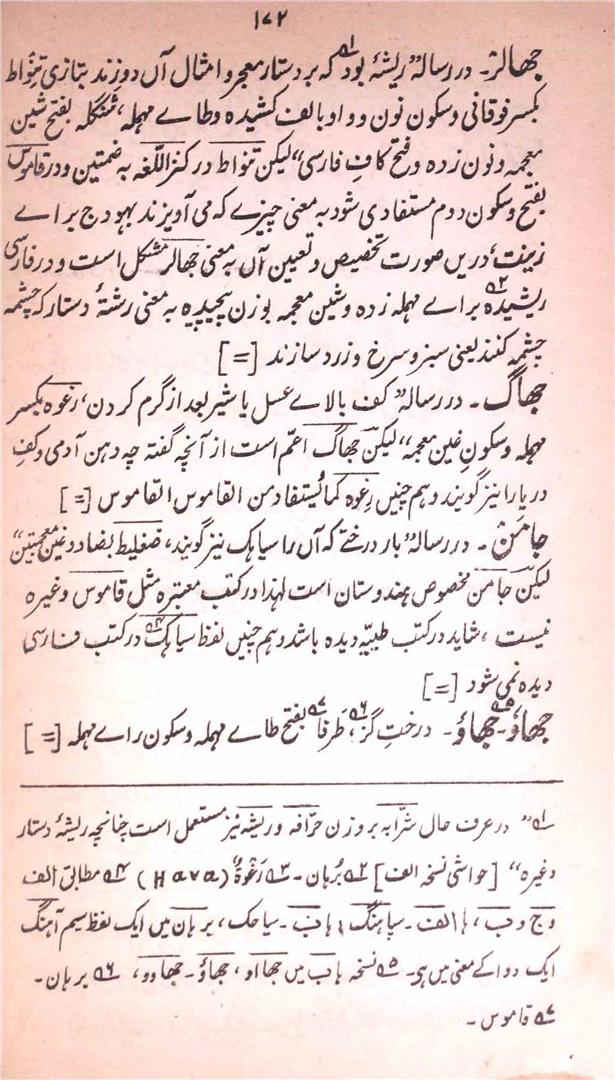 ۱۷۲
جھالر۔ در رسالہ "ریشۂ بود ۱؎ کہ بر دستار معجر و امثال آں دوزند بتازی تِنواط
بکسر فوقانی و سکون نون و واو بالف کشیدہ و طاے مہملہ، شنگلہ بفتح شین
معجمہ و نون زدہ و فتح کافِ فارسی" لیکن تنواط در کنز اللّغہ بہ ضمتین و در قاموس
بفتح و سکون دوم مستفاد می شود بہ معنی چیزے کہ می آویزند بہودج براے
زینت، دریں صورت تخصیص و تعیین آں بہ معنی جھالر مشکل است و در فارسی
ریشیدہ ۲؎ براے مہملہ زدہ و شین معجمہ بوزن پیچیدہ بہ معنی رشتۂ دستار کہ چشمہ
چشمہ کنند یعنی سبز و سرخ و زرد سازند [=]
جھاگ۔ در رسالہ "کف بالاے عسل یا شیر بعد از گرم کردن، رغوہ بکسر
مہملہ و سکونِ غین معجمہ" لیکن جھاگ اعم است از آنچہ گفتہ چہ دہن آدمی و کفِ
دریا را نیز گویند و ہم چنیں رغوہ کما یُستفاد من القاموس القاموس [=]
جامن۔ در رسالہ "بار درختے کہ آں را سیاہک نیز گویند، ضغلیط بضاد و غین معجمتین"
لیکن جامن مخصوص ہندوستان است لہٰذا در کتب معتبرہ مثل قاموس وغیرہ
نیست، شاید در کتب طبیّہ دیدہ باشد و ہم چنیں لفظ سیاہک ۴؎ در کتب فارسی
دیدہ نمی شود [=]
جھاؤ ۵؎۔ جھاؤ۔ درختِ گز ۶؎، طَرفا ۷؎ بفتح طاے مہملہ و سکون راے مہملہ [=]
۱؎ "در عرف حال شرّابہ بر وزن خرّافہ و ریشہ نیز مستعمل است چنانچہ ریشۂ دستار
وغیرہ" [حواشی نسخہ الف] ۲؎ بُرہان۔ ۳؎ رَغْوۃٌ (Hava) ۴؎ مطابق الف
و ج و ب، ہا الف۔ سپاہنگ؛ ہا ب۔ سیاحک، برہان میں ایک لفظ سیم آہنگ
ایک دوا کے معنی میں ہی۔ ۵؎ نسخہ ہاب میں جھااو، جھاؤ۔ جھاوو، ۶؎ برہان۔
۷؎ قاموس۔